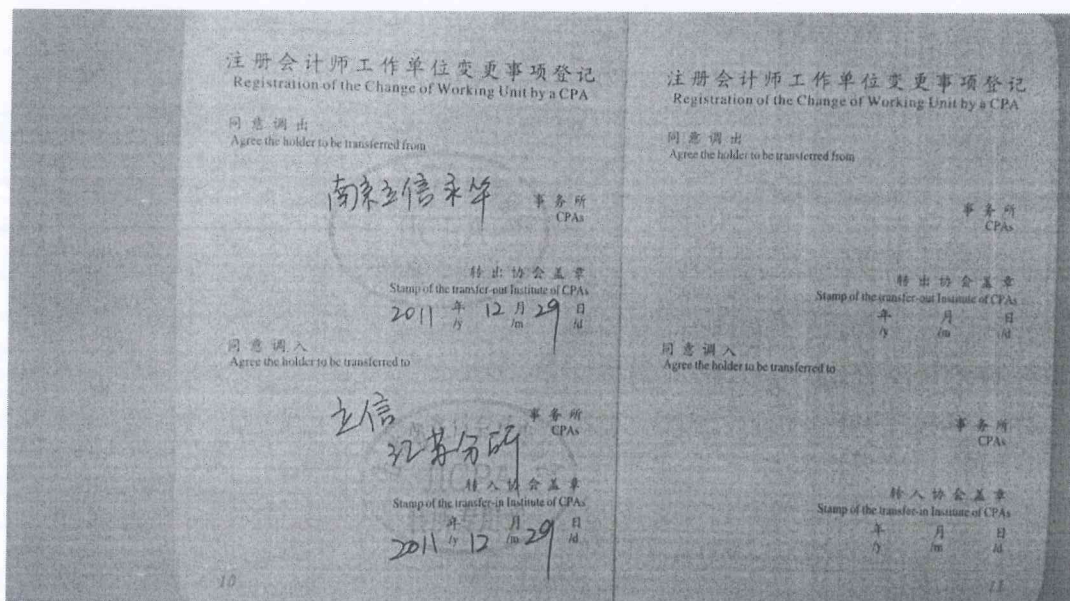 注册会计师工作单位变更事项登记
Registration of the Change of Working Unit by a CPA
同意调出
Agree the holder to be transferred from
南京立信永华 事务所
CPAs
转出协会盖章
Stamp of the transfer-out Institute of CPAs
2011 年 12 月 29 日
/y /m /d
同意调入
Agree the holder to be transferred to
立信 事务所
江苏分所 CPAs
转入协会盖章
Stamp of the transfer-in Institute of CPAs
年 月 日
2011 /y 12 /m 29 /d
10
注册会计师工作单位变更事项登记
Registration of the Change of Working Unit by a CPA
同意调出
Agree the holder to be transferred from
事务所
CPAs
转出协会盖章
Stamp of the transfer-out Institute of CPAs
年 月 日
/y /m /d
同意调入
Agree the holder to be transferred to
事务所
CPAs
转入协会盖章
Stamp of the transfer-in Institute of CPAs
年 月 日
/y /m /d
11